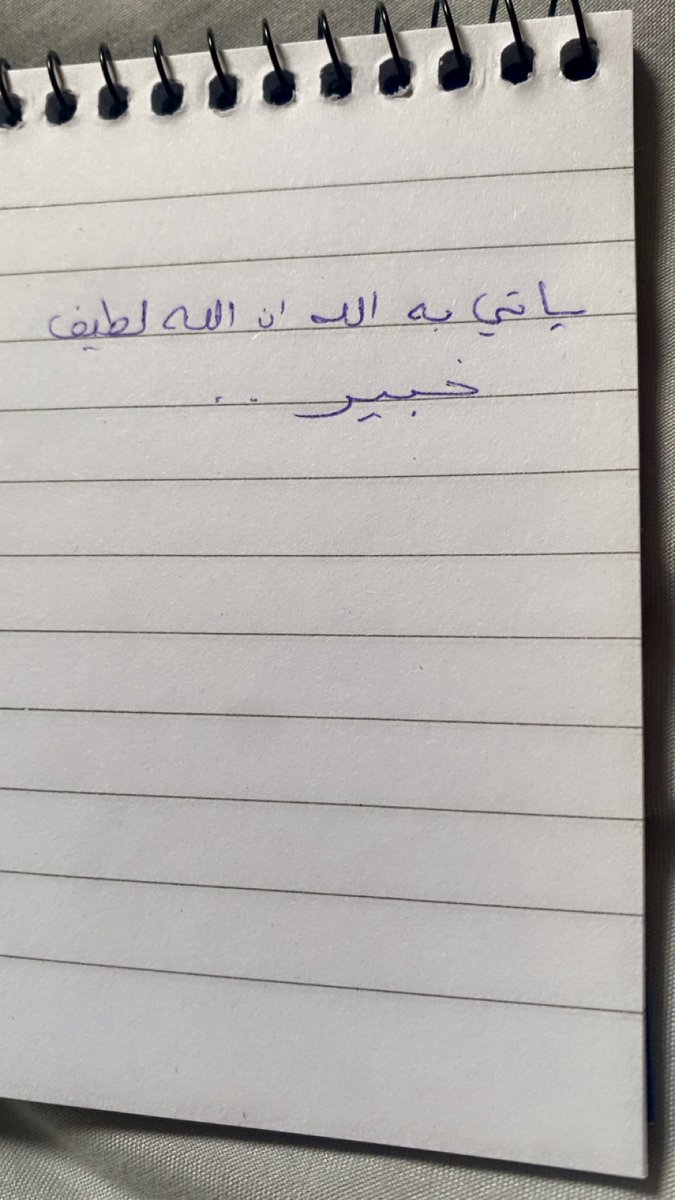 ياتي به الله ان الله لطيف
خبير ..